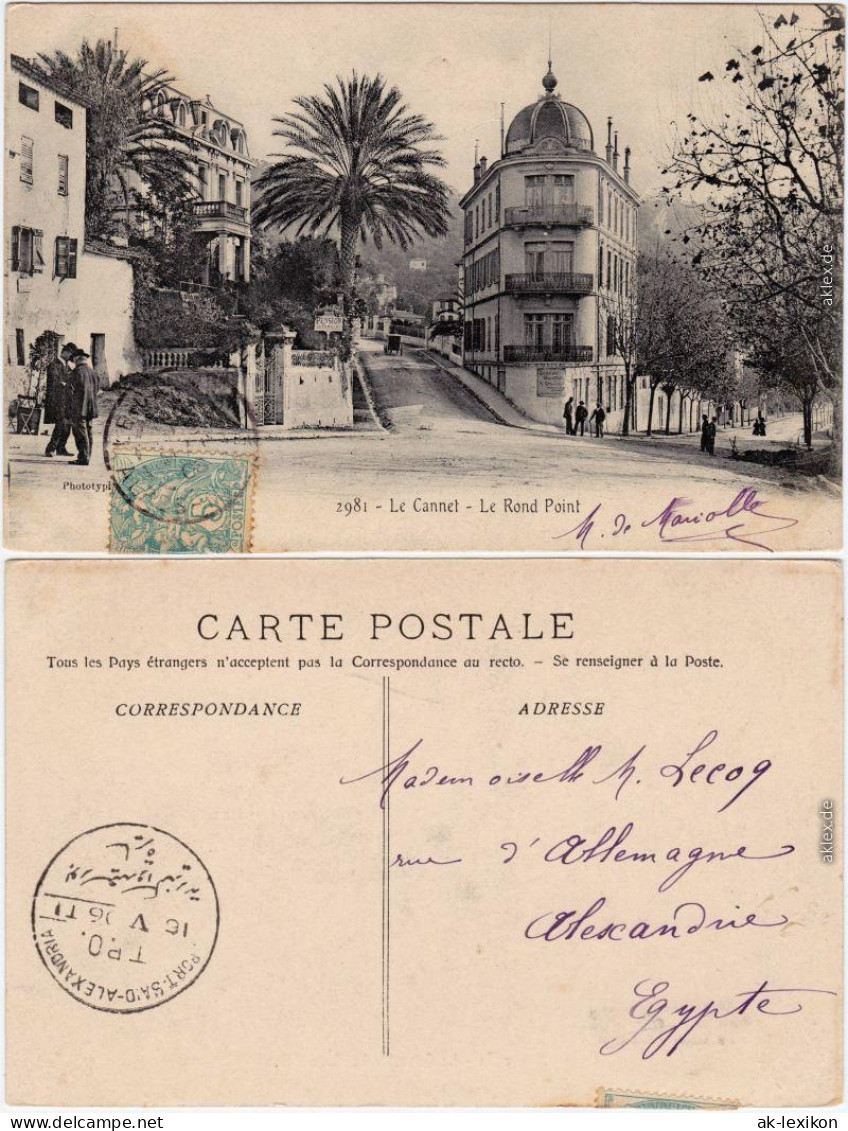 PENSION
Phototypi
2981 - Le Cannet - Le Rond Point
M. de Mariolle
aklex.de
CARTE POSTALE
Tous les Pays étrangers n'acceptent pas la Correspondance au recto. - Se renseigner à la Poste.
CORRESPONDANCE
ADRESSE
Mademoiselle M. Lecoq
rue d'Allemagne
Alexandrie
Egypte
PORT-SAID-ALEXANDRIA
T.P.O.
16 V 06 T1
aklex.de
ak-lexikon